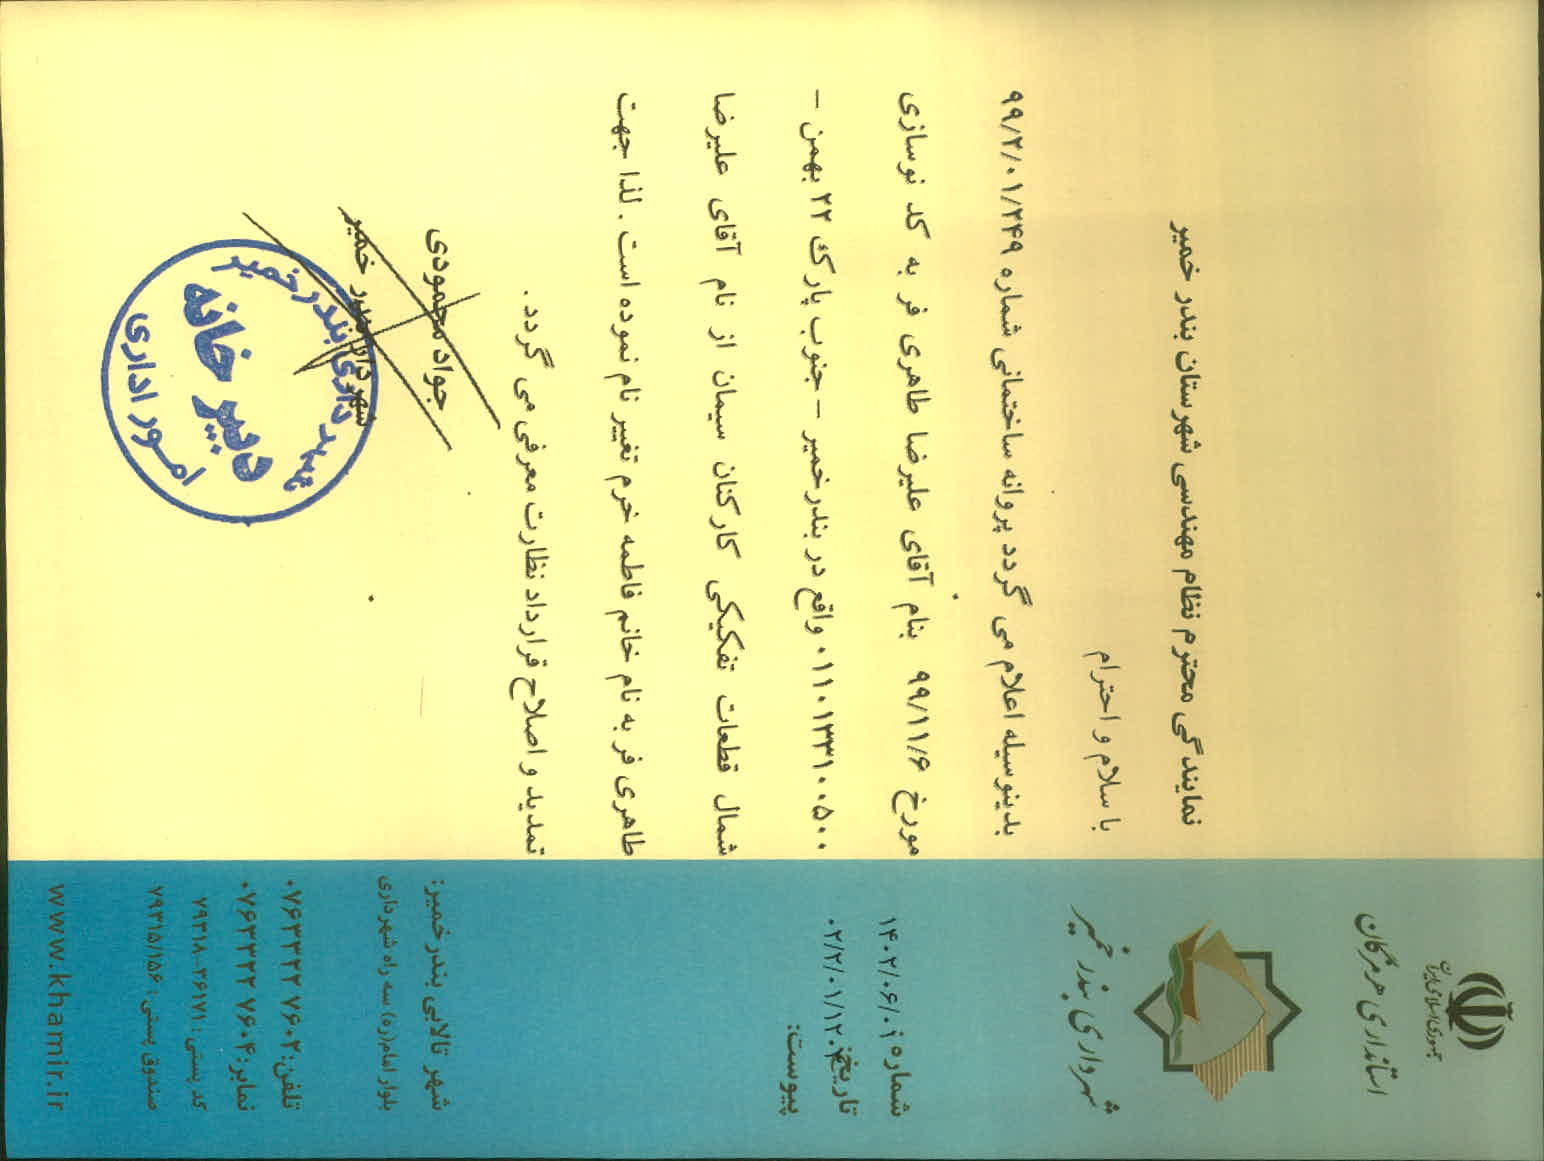 جمهوری اسلامی ایران
استانداری هرمزگان
شهرداری بندر خمیر
شماره: ۱۴۰۲/۰۶/۰۱
تاریخ: ۰۲/۲/۰۱/۱۲۰۴
پیوست:
نمایندگی محترم نظام مهندسی شهرستان بندر خمیر
با سلام و احترام
بدینوسیله اعلام می گردد پروانه ساختمانی شماره ۹۹/۲/۰۱/۲۴۹
مورخ ۹۹/۱۱/۶ بنام آقای علیرضا طاهری فر به کد نوسازی
۰۱۱۰۱۳۳۱۰۰۵۰۰ واقع در بندرخمیر – جنوب پارک ۲۲ بهمن –
شمال قطعات تفکیکی کارکنان سیمان از نام آقای علیرضا
طاهری فر به نام خانم فاطمه خرم تغییر نام نموده است . لذا جهت
تمدید و اصلاح قرارداد نظارت معرفی می گردد .
جواد محمودی
شهردار بندر خمیر
شهرداری بندرخمیر
دبیر خانه
امور اداری
شهر تالابی بندرخمیر:
بلوار امام(ره) سه راه شهرداری
تلفن: ۰۷۶۳۳۲۲۷۶۰۲
نمابر: ۰۷۶۳۳۲۲۷۶۰۴
کد پستی: ۷۹۳۱۸-۲۶۱۷۱
صندوق پستی: ۷۹۳۱۵/۱۵۶
www.khamir.ir